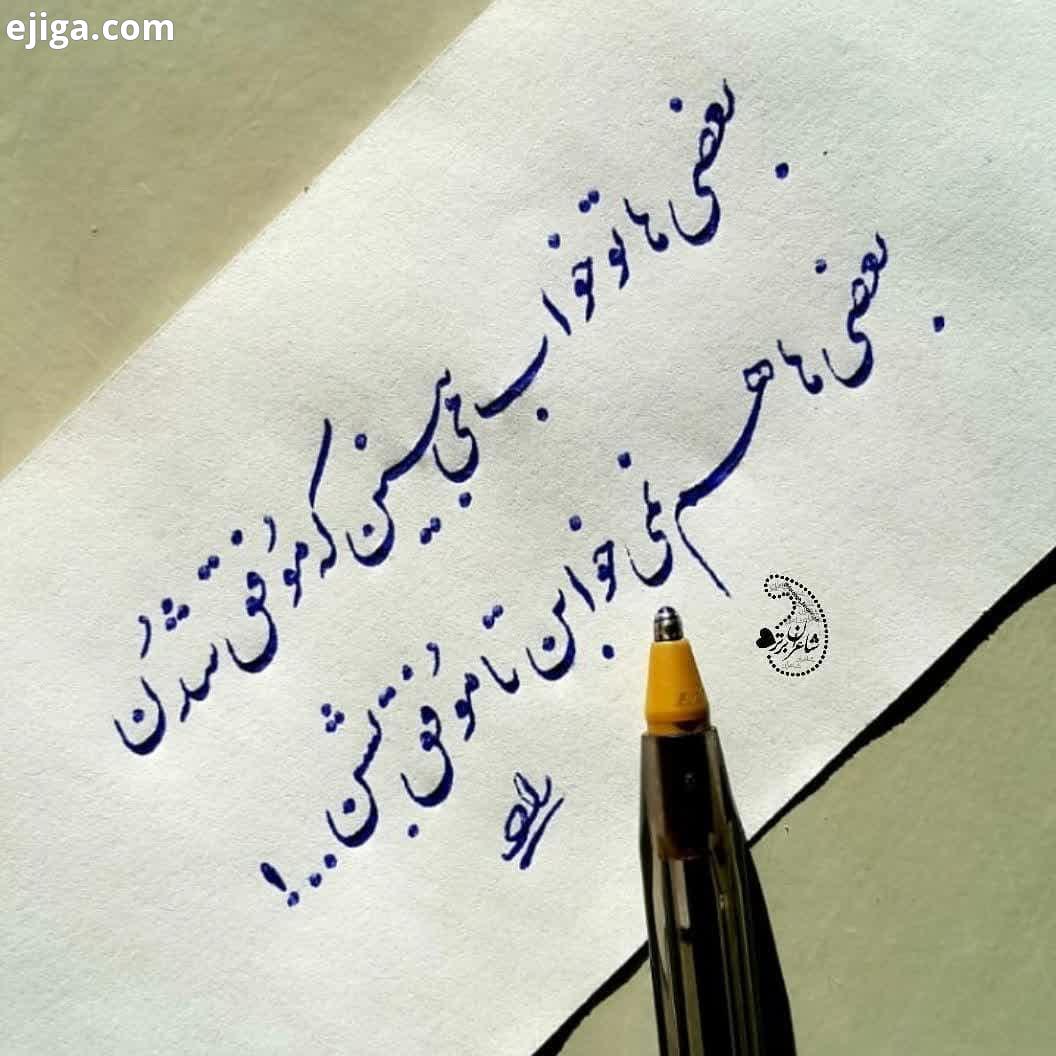 ejiga.com
بعضی ها تو خواب می بینن که مُوفق شدنُ
بعضی ها هم نمی خوابن تا مُوفق بشن..!
شاعران برتر